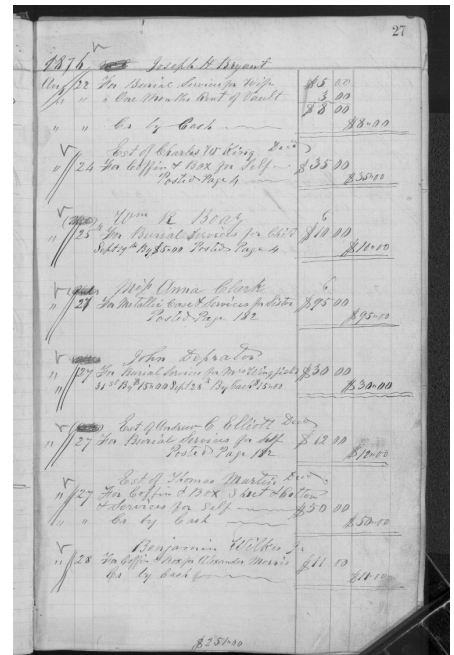 27
1876 Joseph H Bryant
Aug 22 For Burial Services for Wife $5 00
" " " One Months Rent of Vault 3 00
$8 00
" " Cr by Cash $8-00
Est of Charles W King Decd
" 24 For Coffin & Box for Self $35 00
Posted Page 4 $35-00
Wm R. Boaz
" 25 For Burial Services for Child $10 00
Sept 19th By $5-00 Posted Page 4 $10-00
Miss Anna Clark
" 27 For Metallic Case & Services for Sister $95 00
Posted Page 182 $95-00
John
" 27 For Burial Service for Mrs Wingfield $30 00
" 31st By $15-00 Sept 28th By Cash $15-00 $30-00
Est of Andrew C Elliott Decd
" 27 For Burial Services for Self $12 00
Posted Page 182 $12-00
Est of Thomas Martin Decd
" 27 For Coffin & Box Short & Cotton
& Services for Self $50 00
" " Cr by Cash $50-00
Benjamin Wilkes
" 28 For Coffin & Box for Alexander Morris $11 00
Cr by Cash $11-00
$251-00